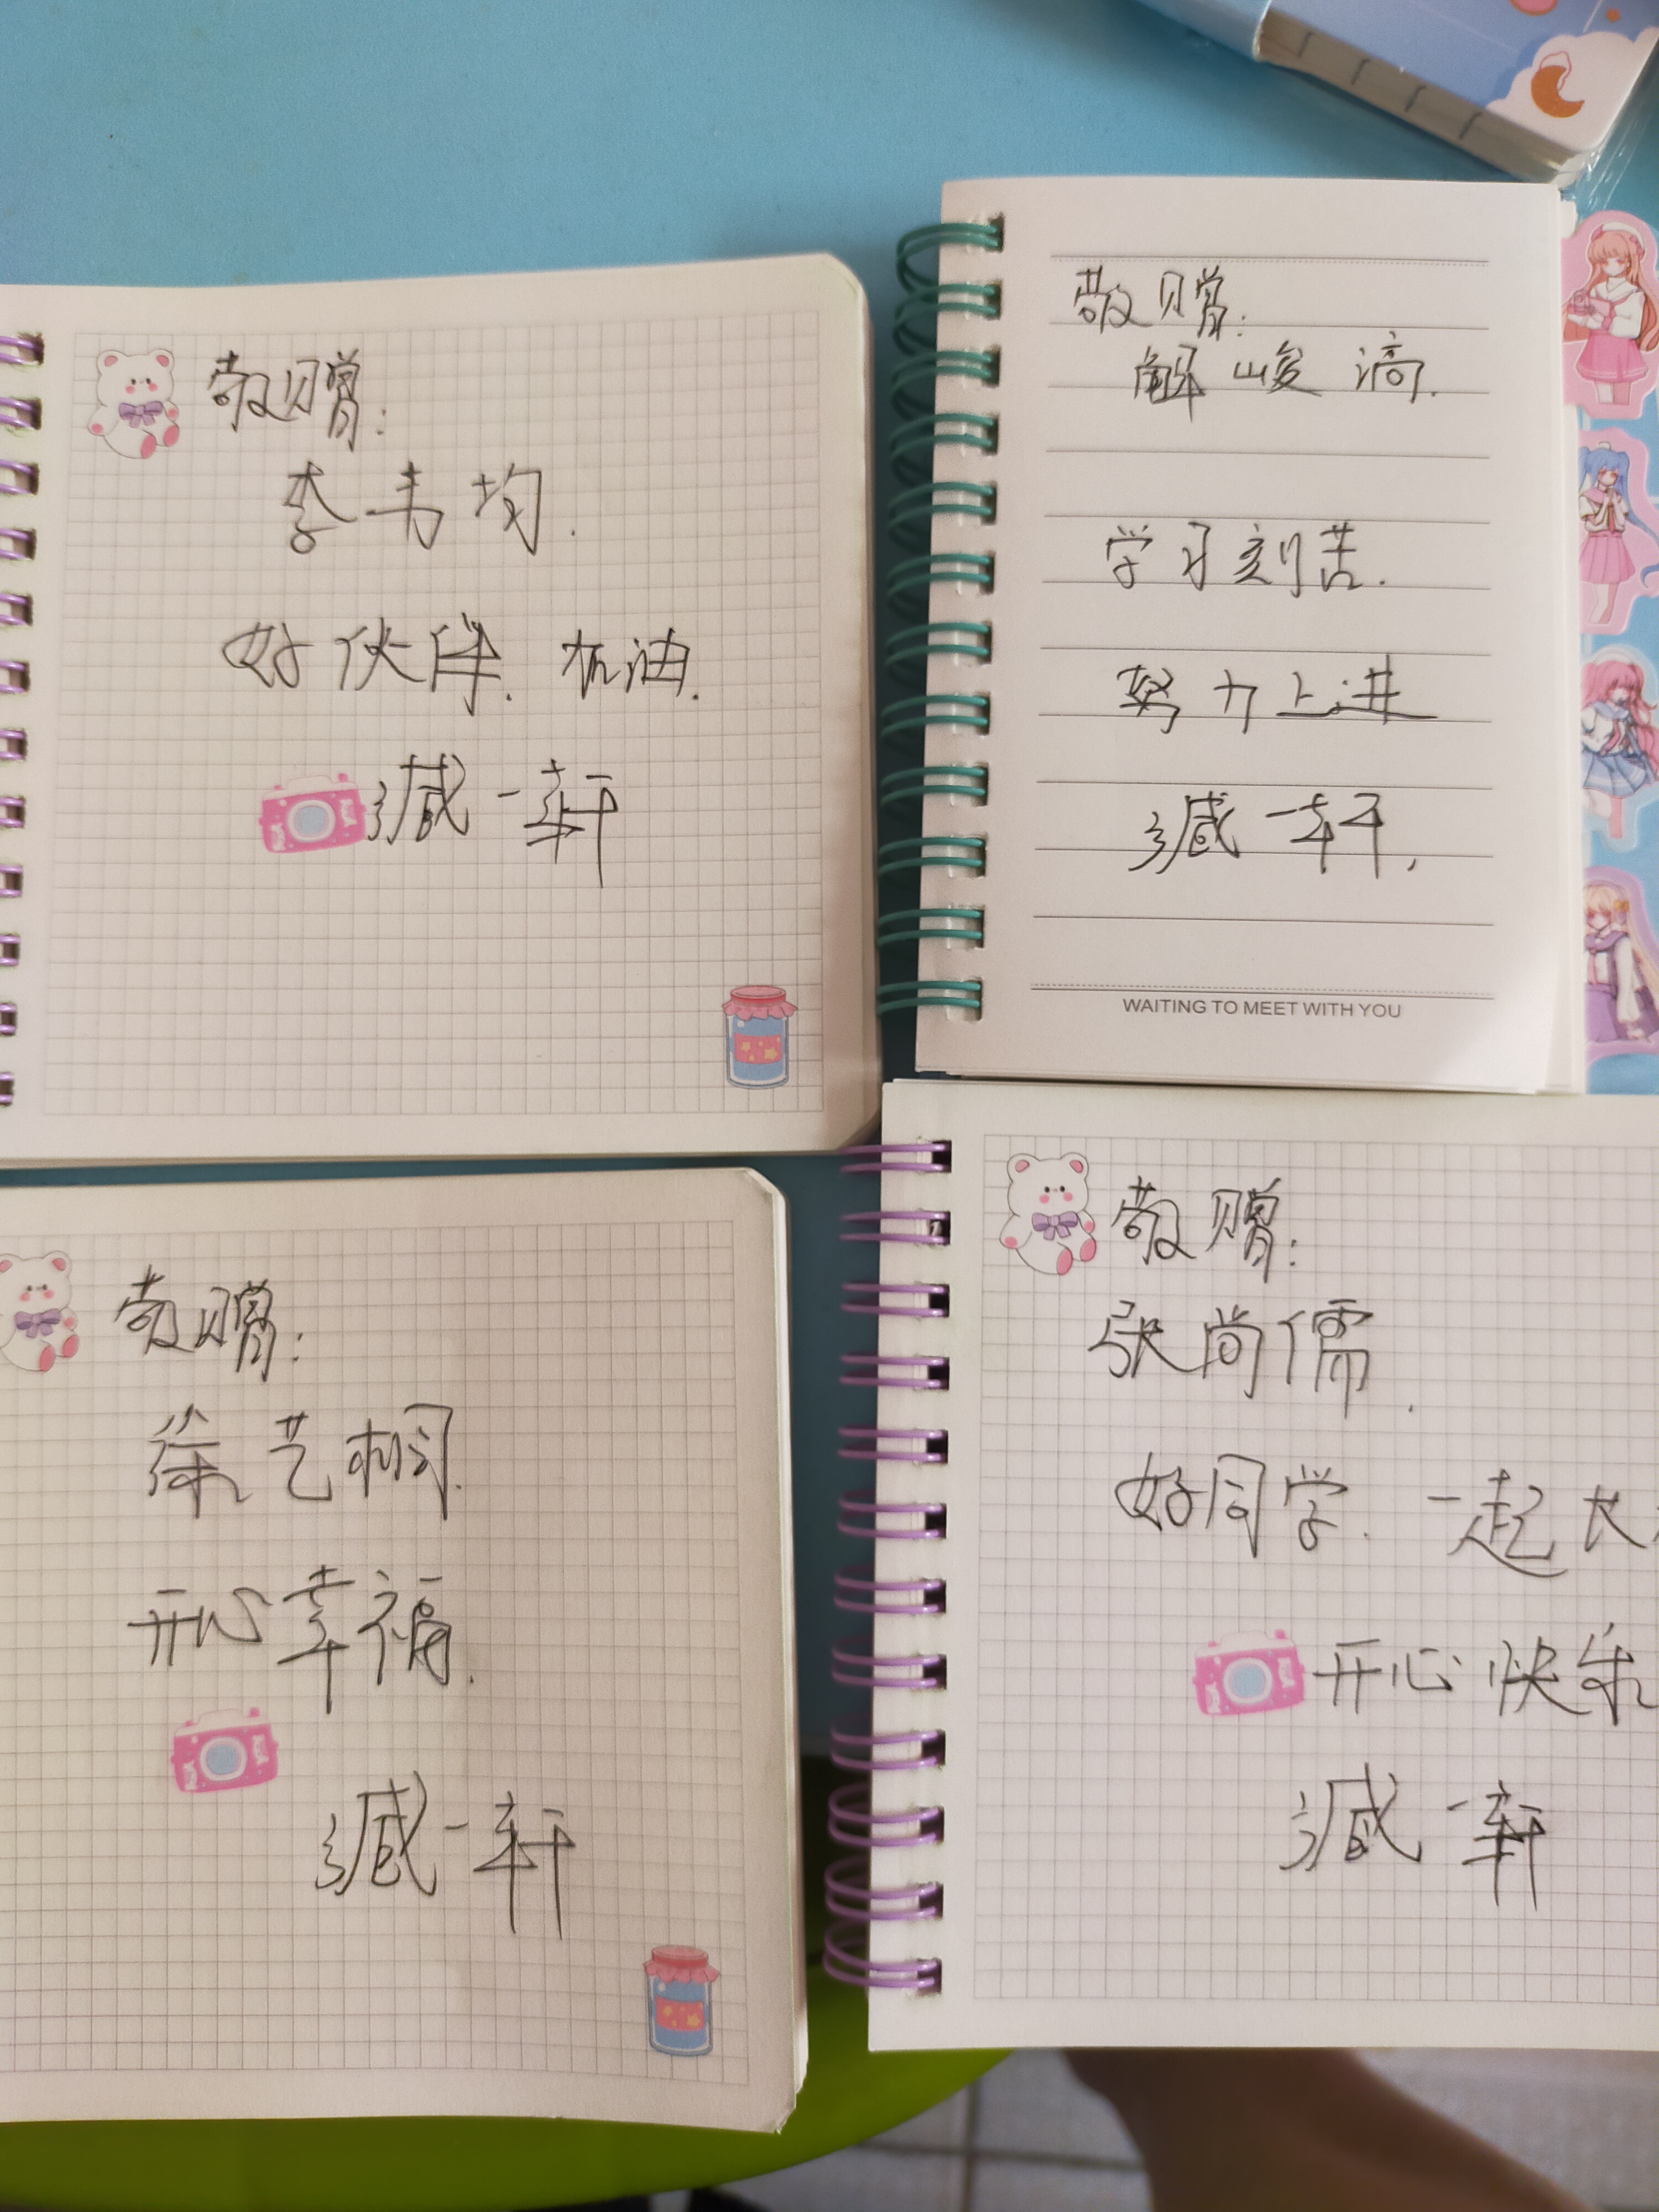 敬赠:
李韦均.
好伙伴. 加油.
臧一轩
敬赠:
解峻滴.
学习刻苦.
努力上进
臧一轩.
WAITING TO MEET WITH YOU
敬赠:
徐艺桐.
开心幸福.
臧一轩
敬赠:
张尚儒.
好同学. 一起长
开心快乐
臧一轩